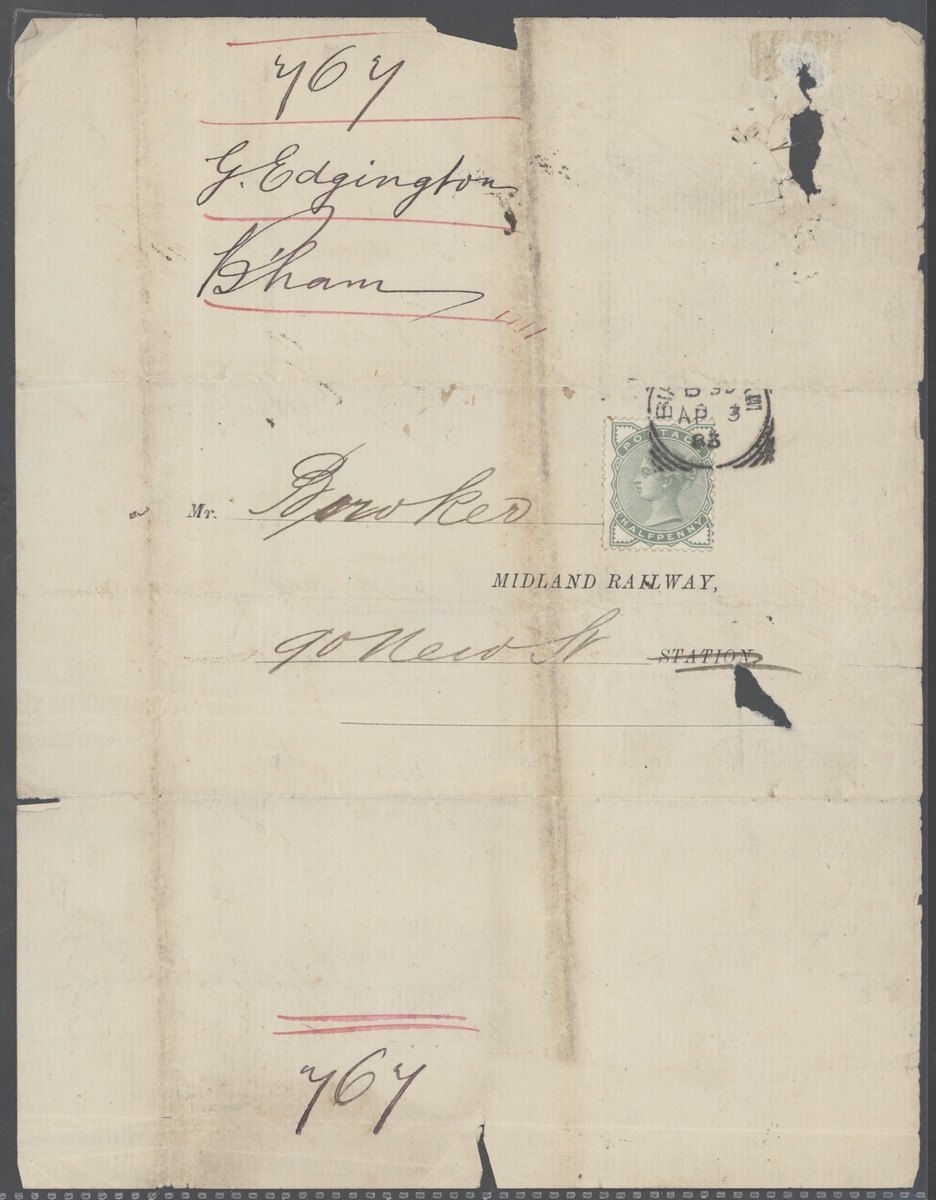 767
G. Edgington
B'ham
AP 3
83
POSTAGE
HALFPENNY
Mr. Bowker
MIDLAND RAILWAY,
90 New St STATION
767